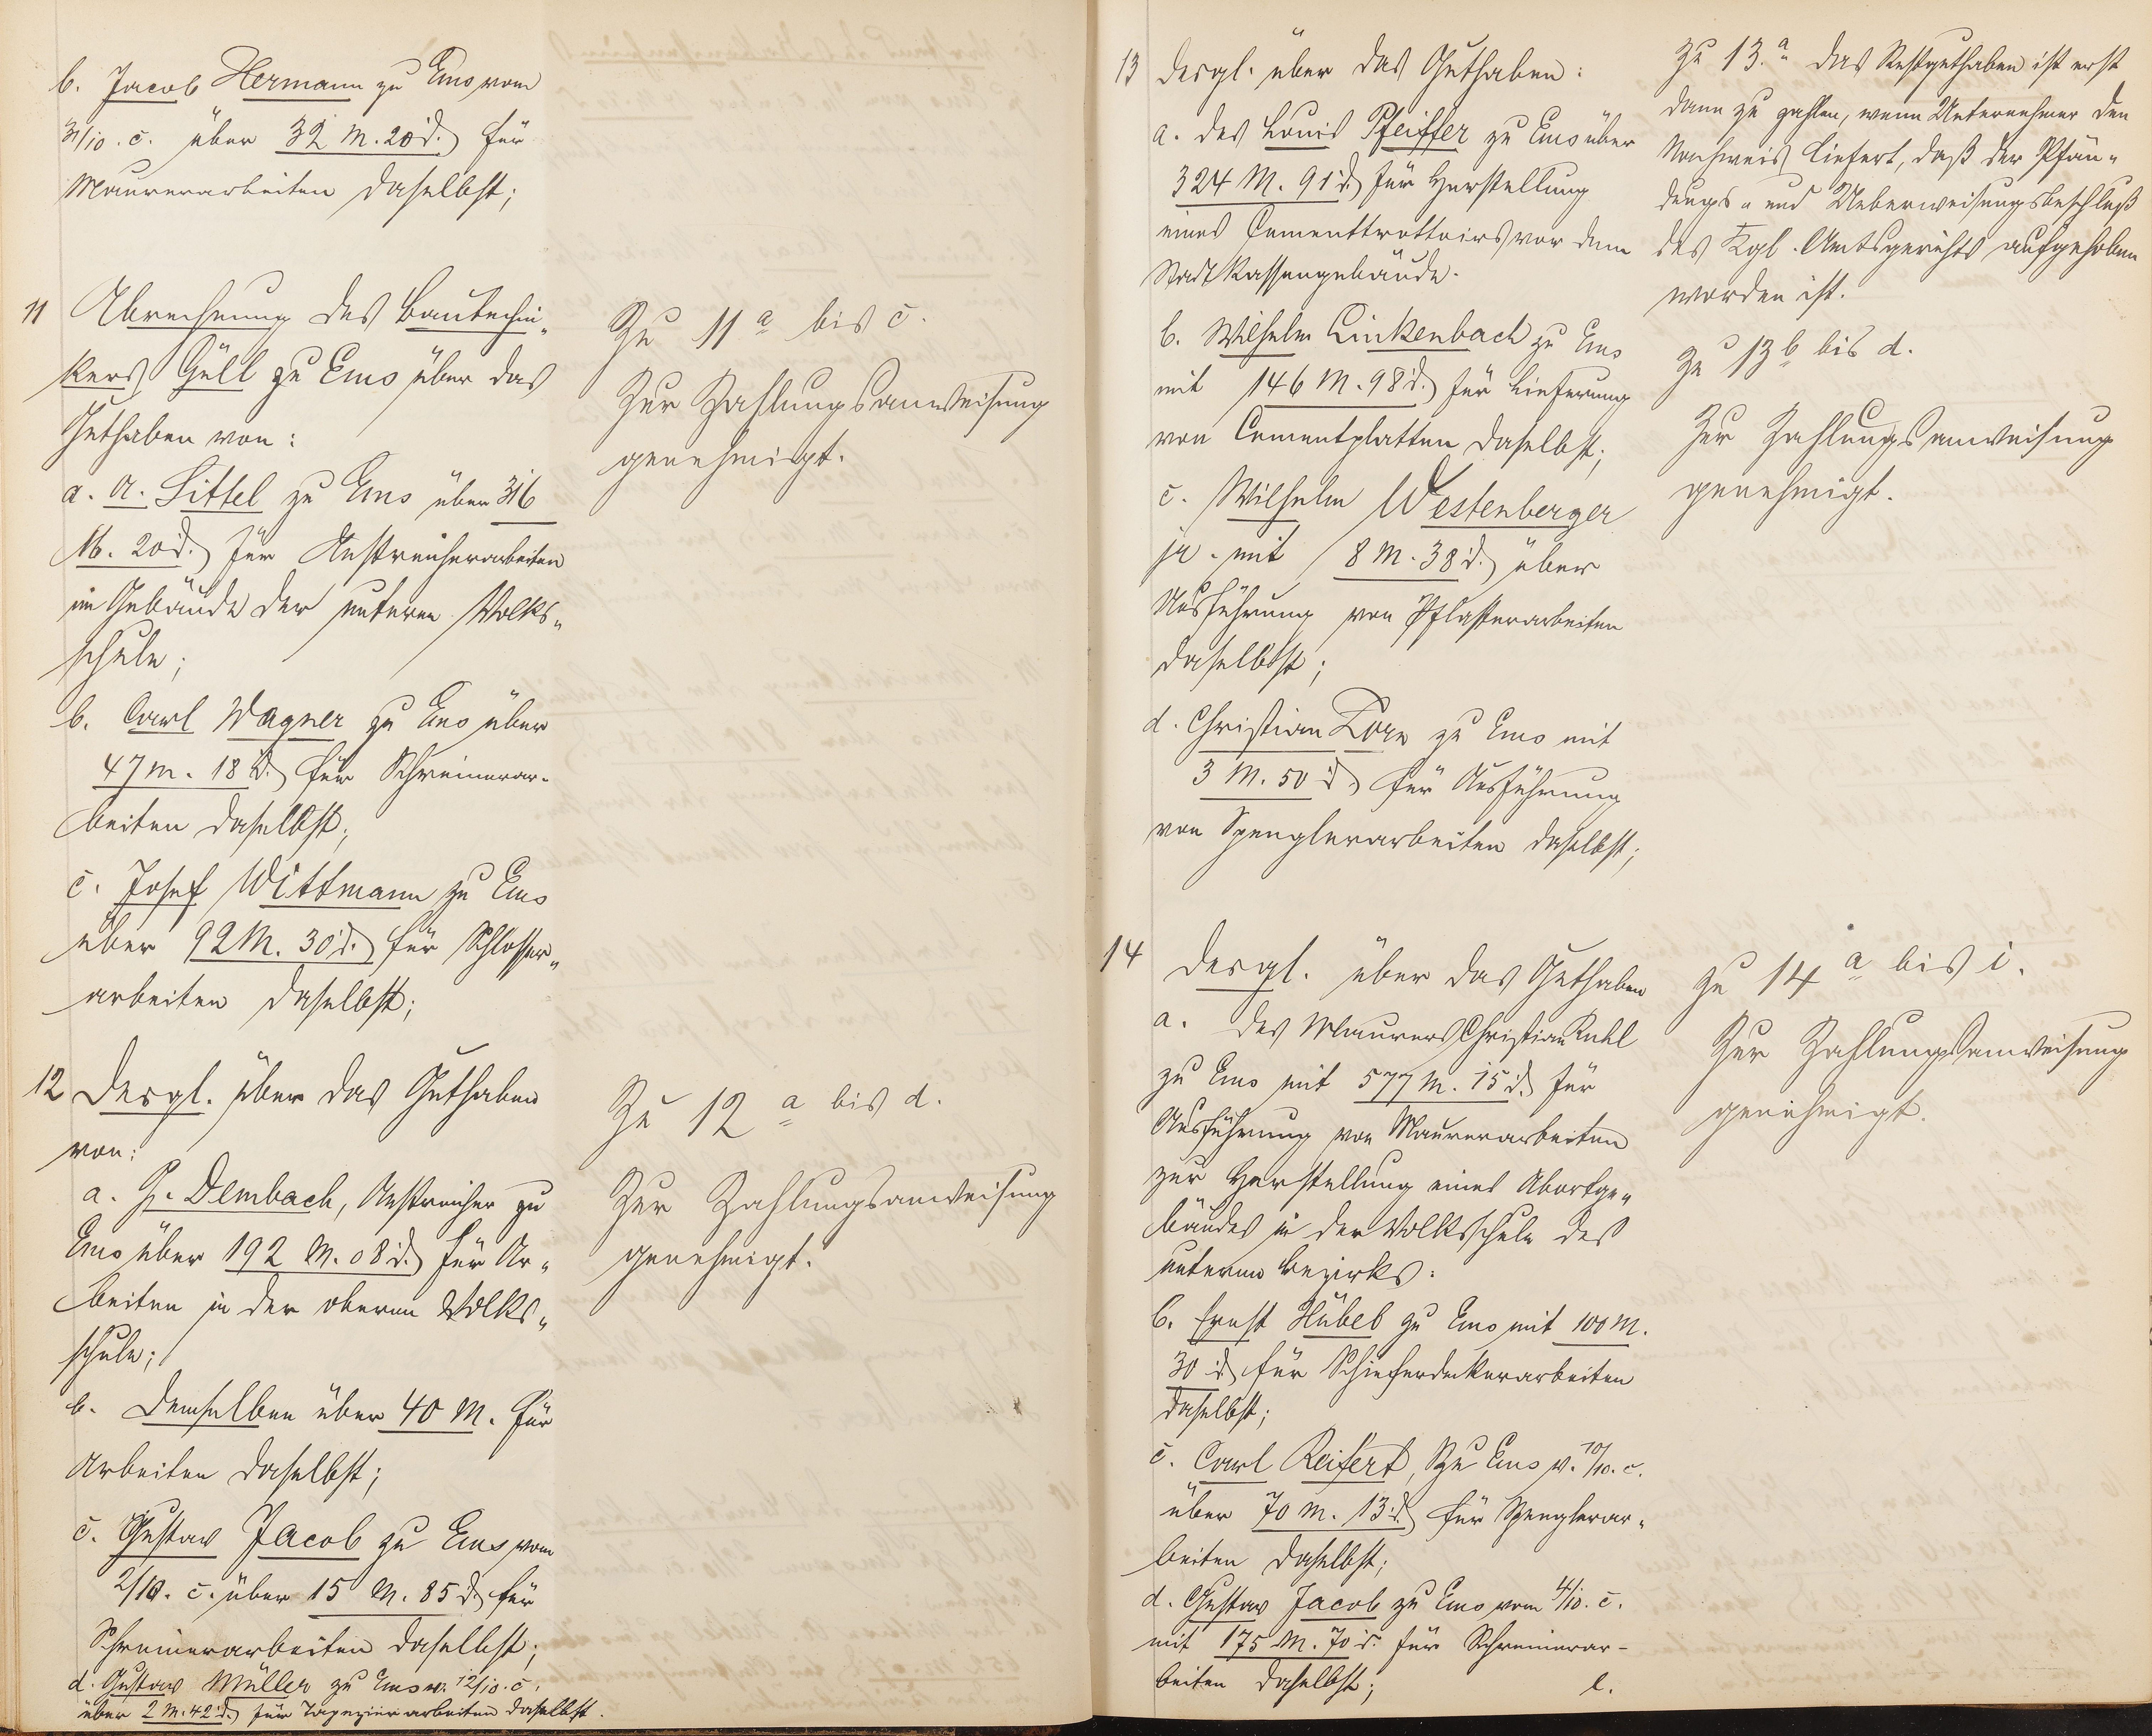 b. Jacob Hermann zu Ems vom
31/10. c. über 32 M. 20 d. für
Maurerarbeiten daselbst;
11 Abrechnung des Bautechni„
kers Güll zu Ems über das
Guthaben von:
a. A. Sittel zu Ems über 316
M. 20 d. für Anstreicherarbeiten
im Gebäude der unteren Volks„
schule;
b. Carl Wagner zu Ems über
47 M. 18 d. für Schreinerar-
beiten daselbst;
c. Josef Wittmann zu Ems
über 92 M. 30 d. für Schlosser„
arbeiten daselbst;
12 Desgl. über das Guthaben
von:
a. H. Dembach, Anstreicher zu
Ems über 192 M. 08 d. für Ar„
beiten in der oberen Volks„
schule;
b. Demselben über 40 M. für
Arbeiten daselbst;
c. Gustav Jacob zu Ems vom
2/10. c. über 15 M. 85 d. für
Schreinerarbeiten daselbst;
d. Gustav Müller zu Ems v. 12/10. c.
über 2 M. 42 d. für Tapezierarbeiten daselbst.
Zu 11 a bis c.
Zur Zahlungsanweisung
genehmigt.
Zu 12 a bis d.
Zur Zahlungsanweisung
genehmigt.
13 Desgl. über das Guthaben:
a. des Louis Pfeiffer zu Ems über
324 M. 91 d. für Herstellung
eines Cementtrottoirs vor dem
Stadtkassengebäude.
b. Wilhelm Linkenbach zu Ems
mit 146 M. 98 d. für Lieferung
von Cementplatten daselbst;
c. Wilhelm Westenberger
jr. mit 8 M. 38 d. über
Ausführung von Pflasterarbeiten
daselbst;
d. Christian Korn zu Ems mit
3 M. 50 d. für Ausführung
von Spenglerarbeiten daselbst;
14 Desgl. über das Guthaben
a. des Maurers Christian Ruhl
zu Ems mit 577 M. 15 d. für
Ausführung von Maurerarbeiten
zur Herstellung eines Abortge„
bäudes in der Volksschule des
unteren Bezirks:
b. Ernst Hübel zu Ems mit 100 M.
30 d. für Schieferdeckerarbeiten
daselbst;
c. Carl Reifert, zu Ems v. 10/10. c.
über 70 M. 13 d. für Spenglerar„
beiten daselbst;
d. Gustav Jacob zu Ems vom 4/10. c.
mit 175 M. 70 d. für Schreinerar-
beiten daselbst; e.
Zu 13.a Das Restguthaben ist erst
dann zu zahlen, wenn Unternehmer den
Nachweis liefert, daß der Pfän„
dungs- und Ueberweisungsbeschluß
des Kgl. Amtsgerichts aufgehoben
worden ist.
Zu 13 b bis d.
Zur Zahlungsanweisung
genehmigt.
Zu 14 a bis i.
Zur Zahlungsanweisung
genehmigt.